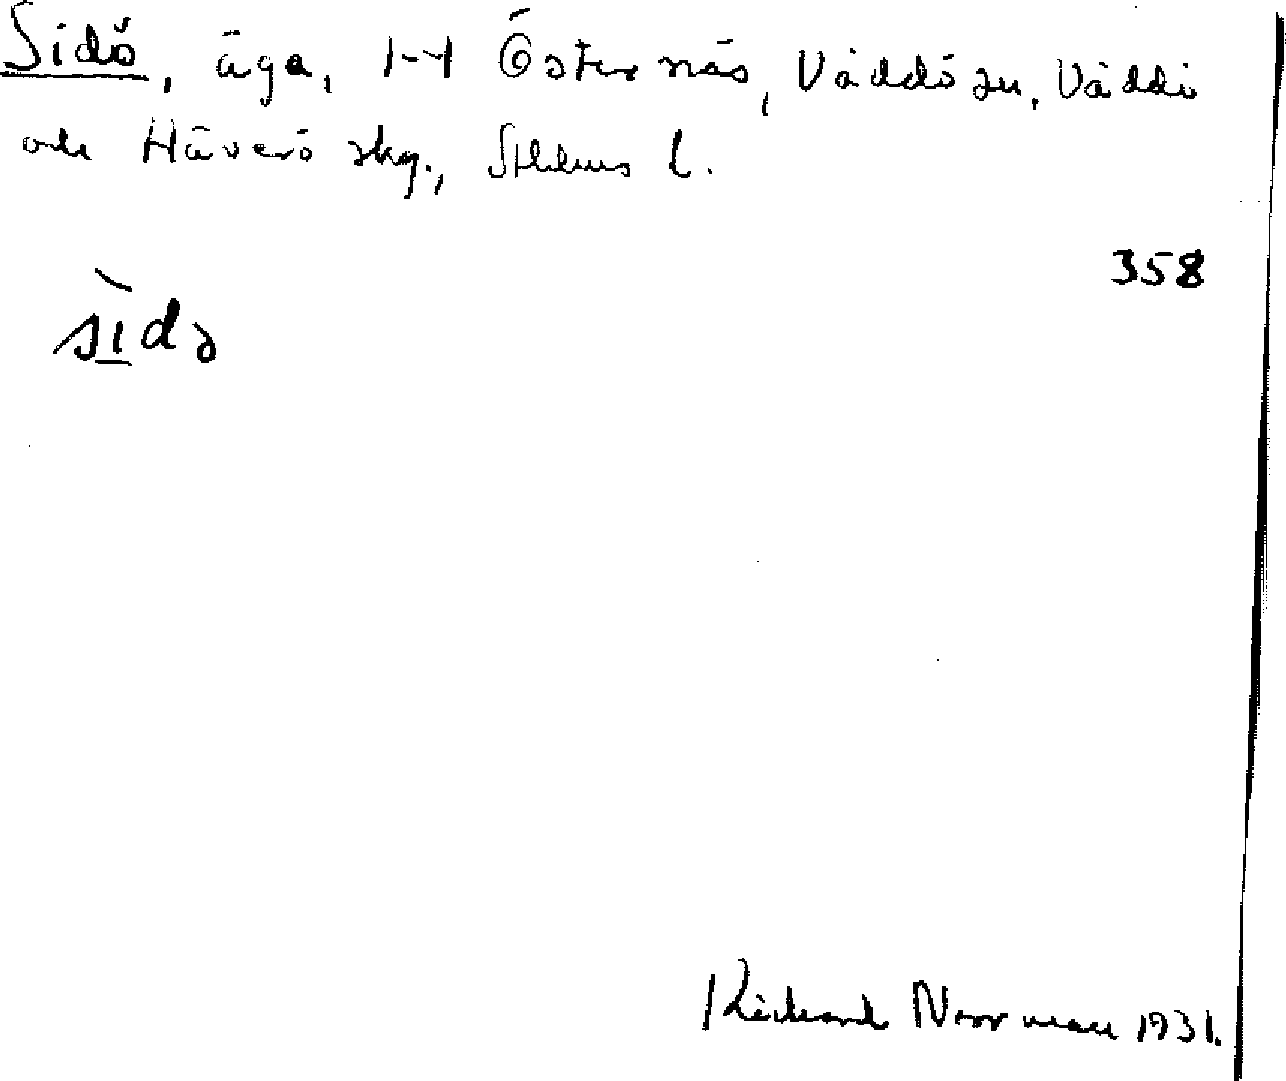 Sidö, äga, H Östernäs, Väddö sn, Väddö
och Häverö skg., Sthlms l.
358
sìdə
Richard Norrman 1931.